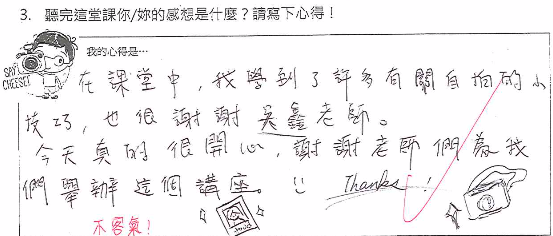 3. 聽完這堂課你/妳的感想是什麼？請寫下心得！
我的心得是…
SAY CHEESE!
在課堂中，我學到了許多有關自拍的小
技巧，也很謝謝吳鑫老師。
今天真的很開心，謝謝老師們為我
們舉辦這個講座。!! Thanks!
不客氣！